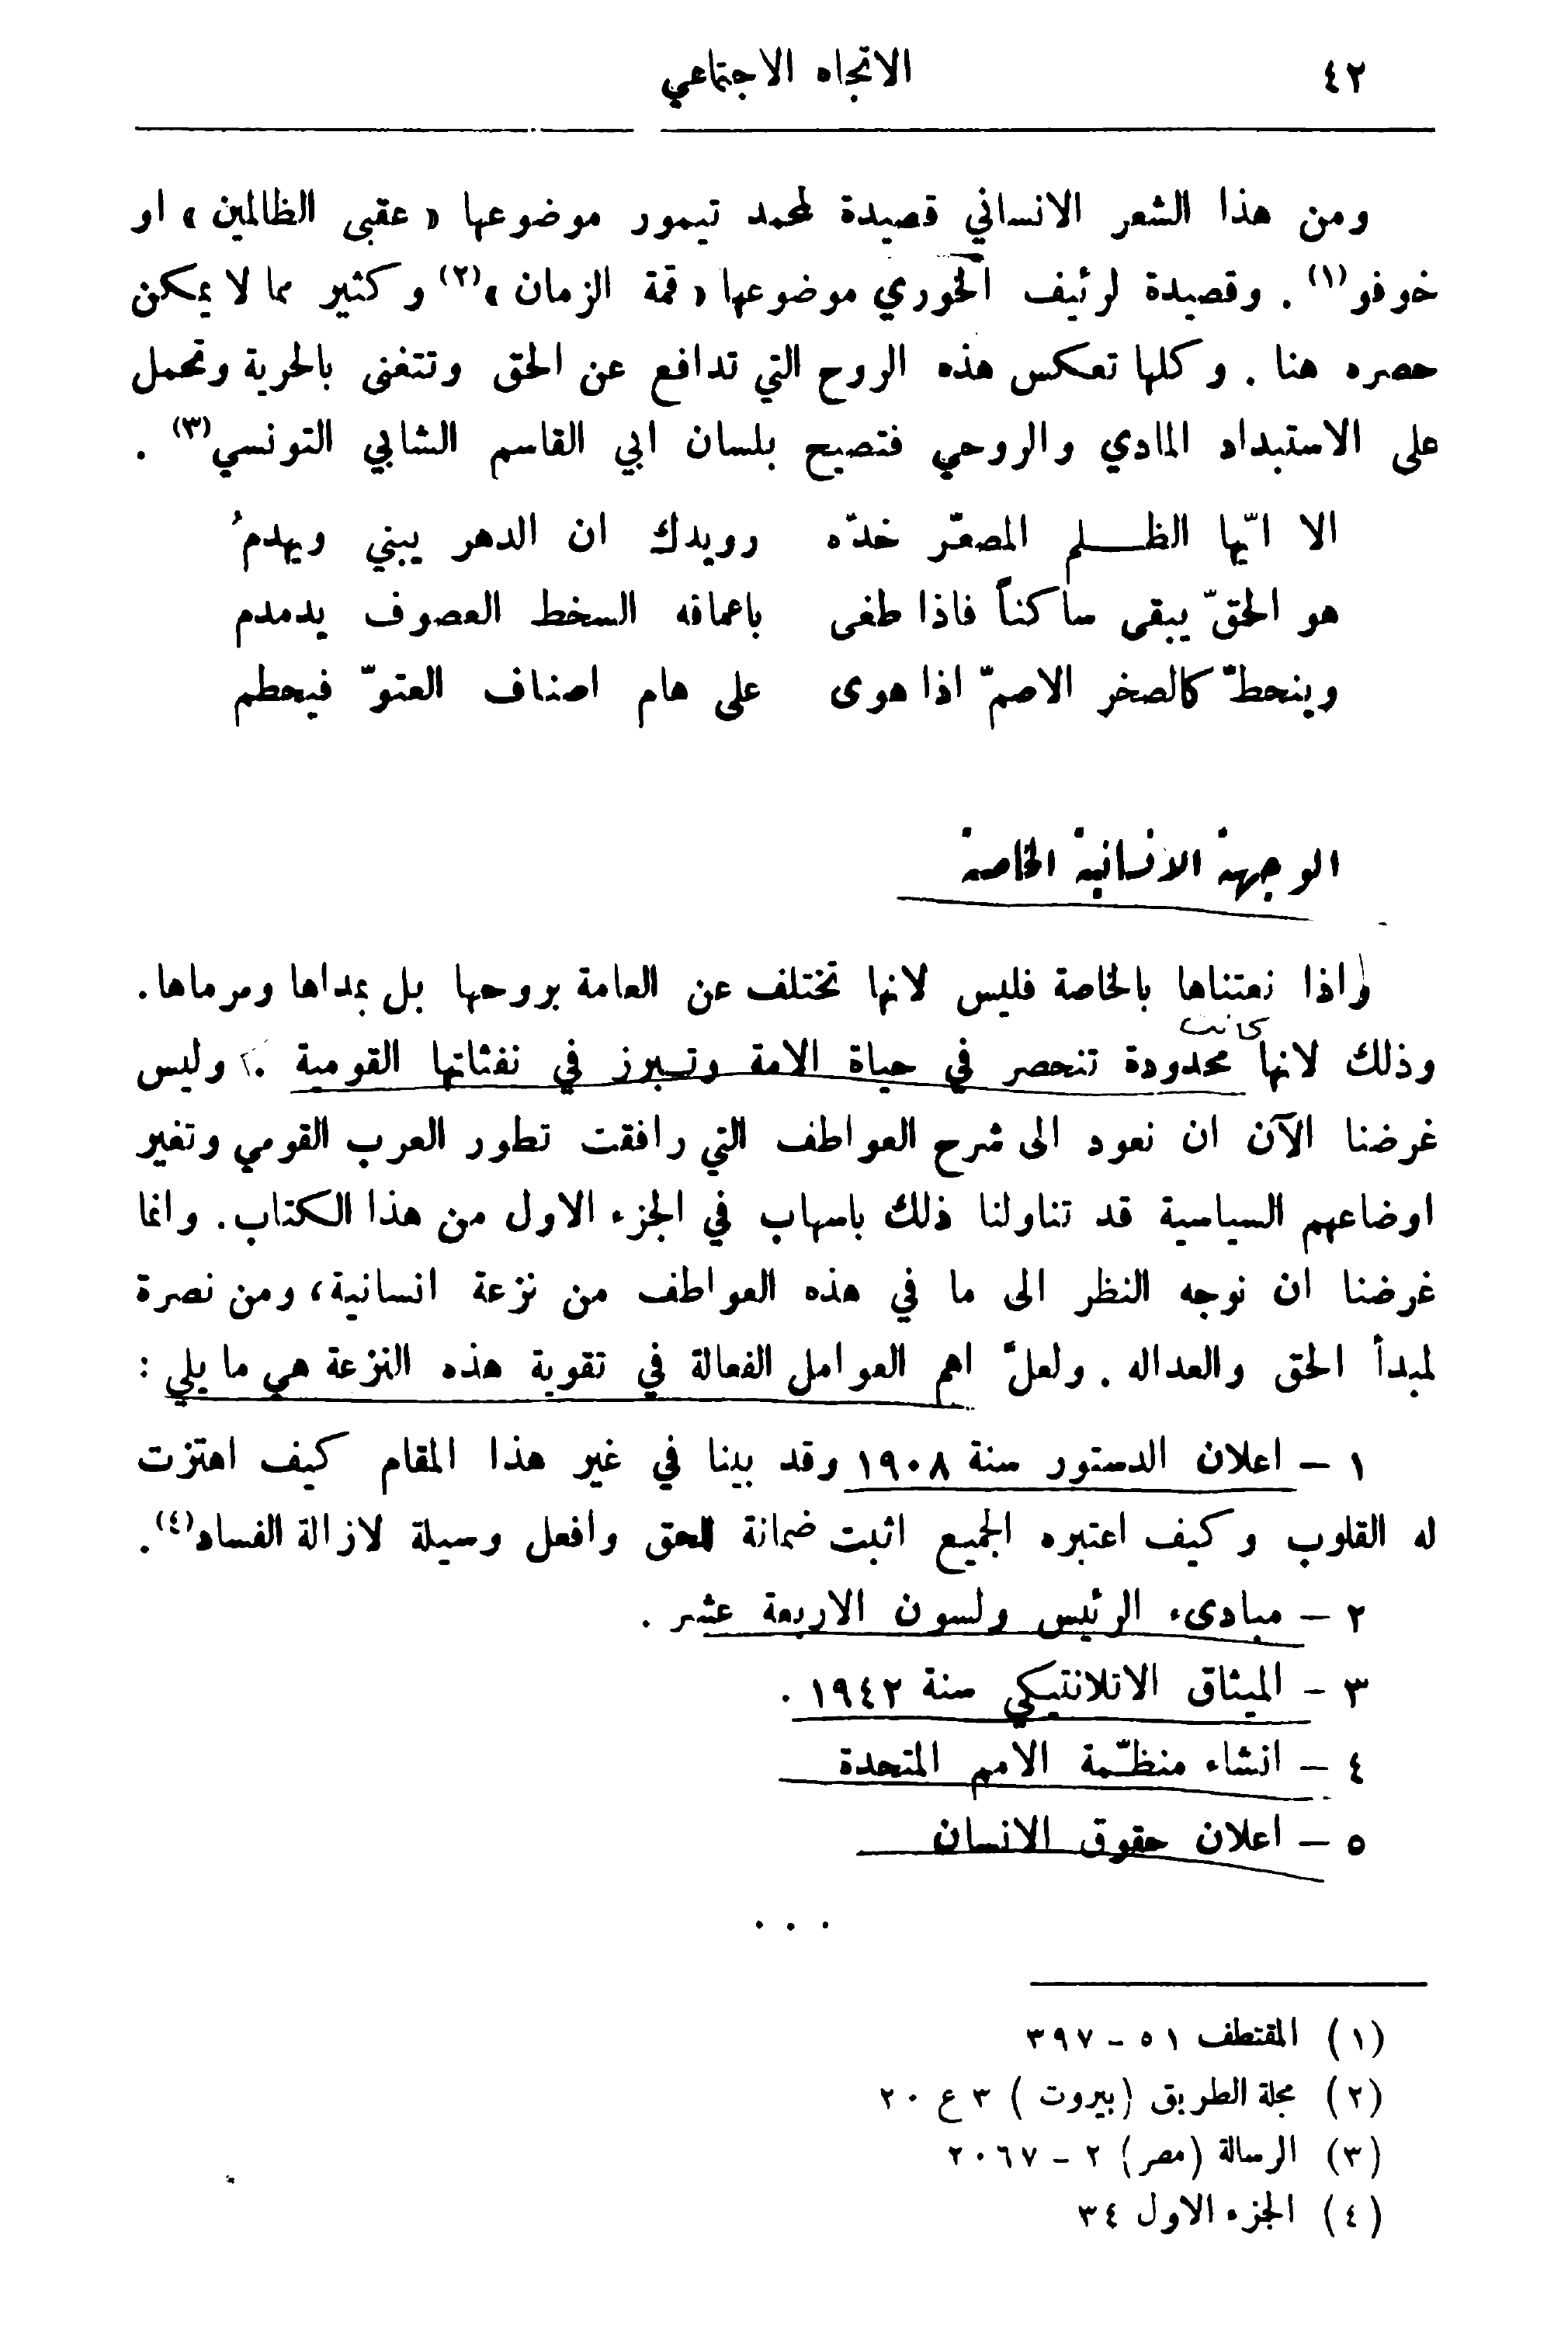 ٤٢ الاتجاه الاجتماعي
ومن هذا الشعر الانساني قصيدة لمحمد تيمور موضوعها « عقبى الظالمين » او
خوفو(١) . وقصيدة لرئيف الخوري موضوعها « قمة الزمان »(٢) وكثير مما لا يمكن
حصره هنا . وكلها تعكس هذه الروح التي تدافع عن الحق وتتغنى بالحرية وتحمل
على الاستبداد المادي والروحي فتصيح بلسان ابي القاسم الشابي التونسي(٣) .
الا ايّها الظلم المصعّر خدّه رويدك ان الدهر يبني ويهدمُ
هو الحقّ يبقى ساكناً فاذا طغى باعماقه السخط العصوف يدمدم
وينحطّ كالصخر الاصمّ اذا هوى على هام اصناف العتوّ فيحطم
الوجهة الانسانية الخاصة
واذا نعتناها بالخاصة فليس لانها تختلف عن العامة بروحها بل بمداها ومرماها.
كانت
وذلك لانها محدودة تنحصر في حياة الامة وتبرز في نفثاتها القومية . وليس
غرضنا الآن ان نعود الى شرح العواطف التي رافقت تطور العرب القومي وتغير
اوضاعهم السياسية قد تناولنا ذلك باسهاب في الجزء الاول من هذا الكتاب. وانما
غرضنا ان نوجه النظر الى ما في هذه العواطف من نزعة انسانية، ومن نصرة
لمبدأ الحق والعداله . ولعلّ اهم العوامل الفعالة في تقوية هذه النزعة هي ما يلي :
١ – اعلان الدستور سنة ١٩٠٨ وقد بينا في غير هذا المقام كيف اهتزت
له القلوب وكيف اعتبره الجميع اثبت ضمانة للحق وافعل وسيلة لازالة الفساد(٤).
٢ – مبادىء الرئيس ولسون الاربعة عشر .
٣ – الميثاق الاتلانتيكي سنة ١٩٤٢ .
٤ – انشاء منظّمة الامم المتحدة
٥ – اعلان حقوق الانسان
. . .
(١) المقتطف ٥١ – ٣٩٧
(٢) مجلة الطريق (بيروت) ٣ ع ٢٠
(٣) الرسالة (مصر) ٢ – ٢٠٦٧
(٤) الجزء الاول ٣٤